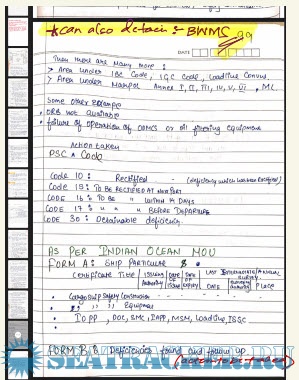 * can also detain :- BWMS
DATE
Then there are many more :
> Area under IBC Code, IGC Code, Loadline Convn.
> Area under Marpol Annex I, II, III, IV, V, VI , ML
Some other
• ORB not available
• failure of operation of ODMCS or oil filtering equipment
Action taken
PSC Code
Code 10 : Rectified - (deficiency which was rectified)
Code 15 : TO BE RECTIFIED AT NEXT PORT
CODE 16 : TO BE " WITHIN 14 DAYS
CODE 17 : " " " BEFORE DEPARTURE
CODE 30 : Detainable deficiency.
AS PER INDIAN OCEAN MOU
FORM A : SHIP PARTICULAR &
Certificate Title ISSUING Authority DATE OF ISSUE DATE OF EXPIRY LAST INTERMEDIATE/ANNUAL SURVEY
DATE PLACE
• Cargo Ship Safety Construction -
• " " " Equipment
• IOPP, DOC, SMC, IAPP, MSM, Loadline, ISSC
FORM B : Deficiencies found and follow up
(action to be taken)